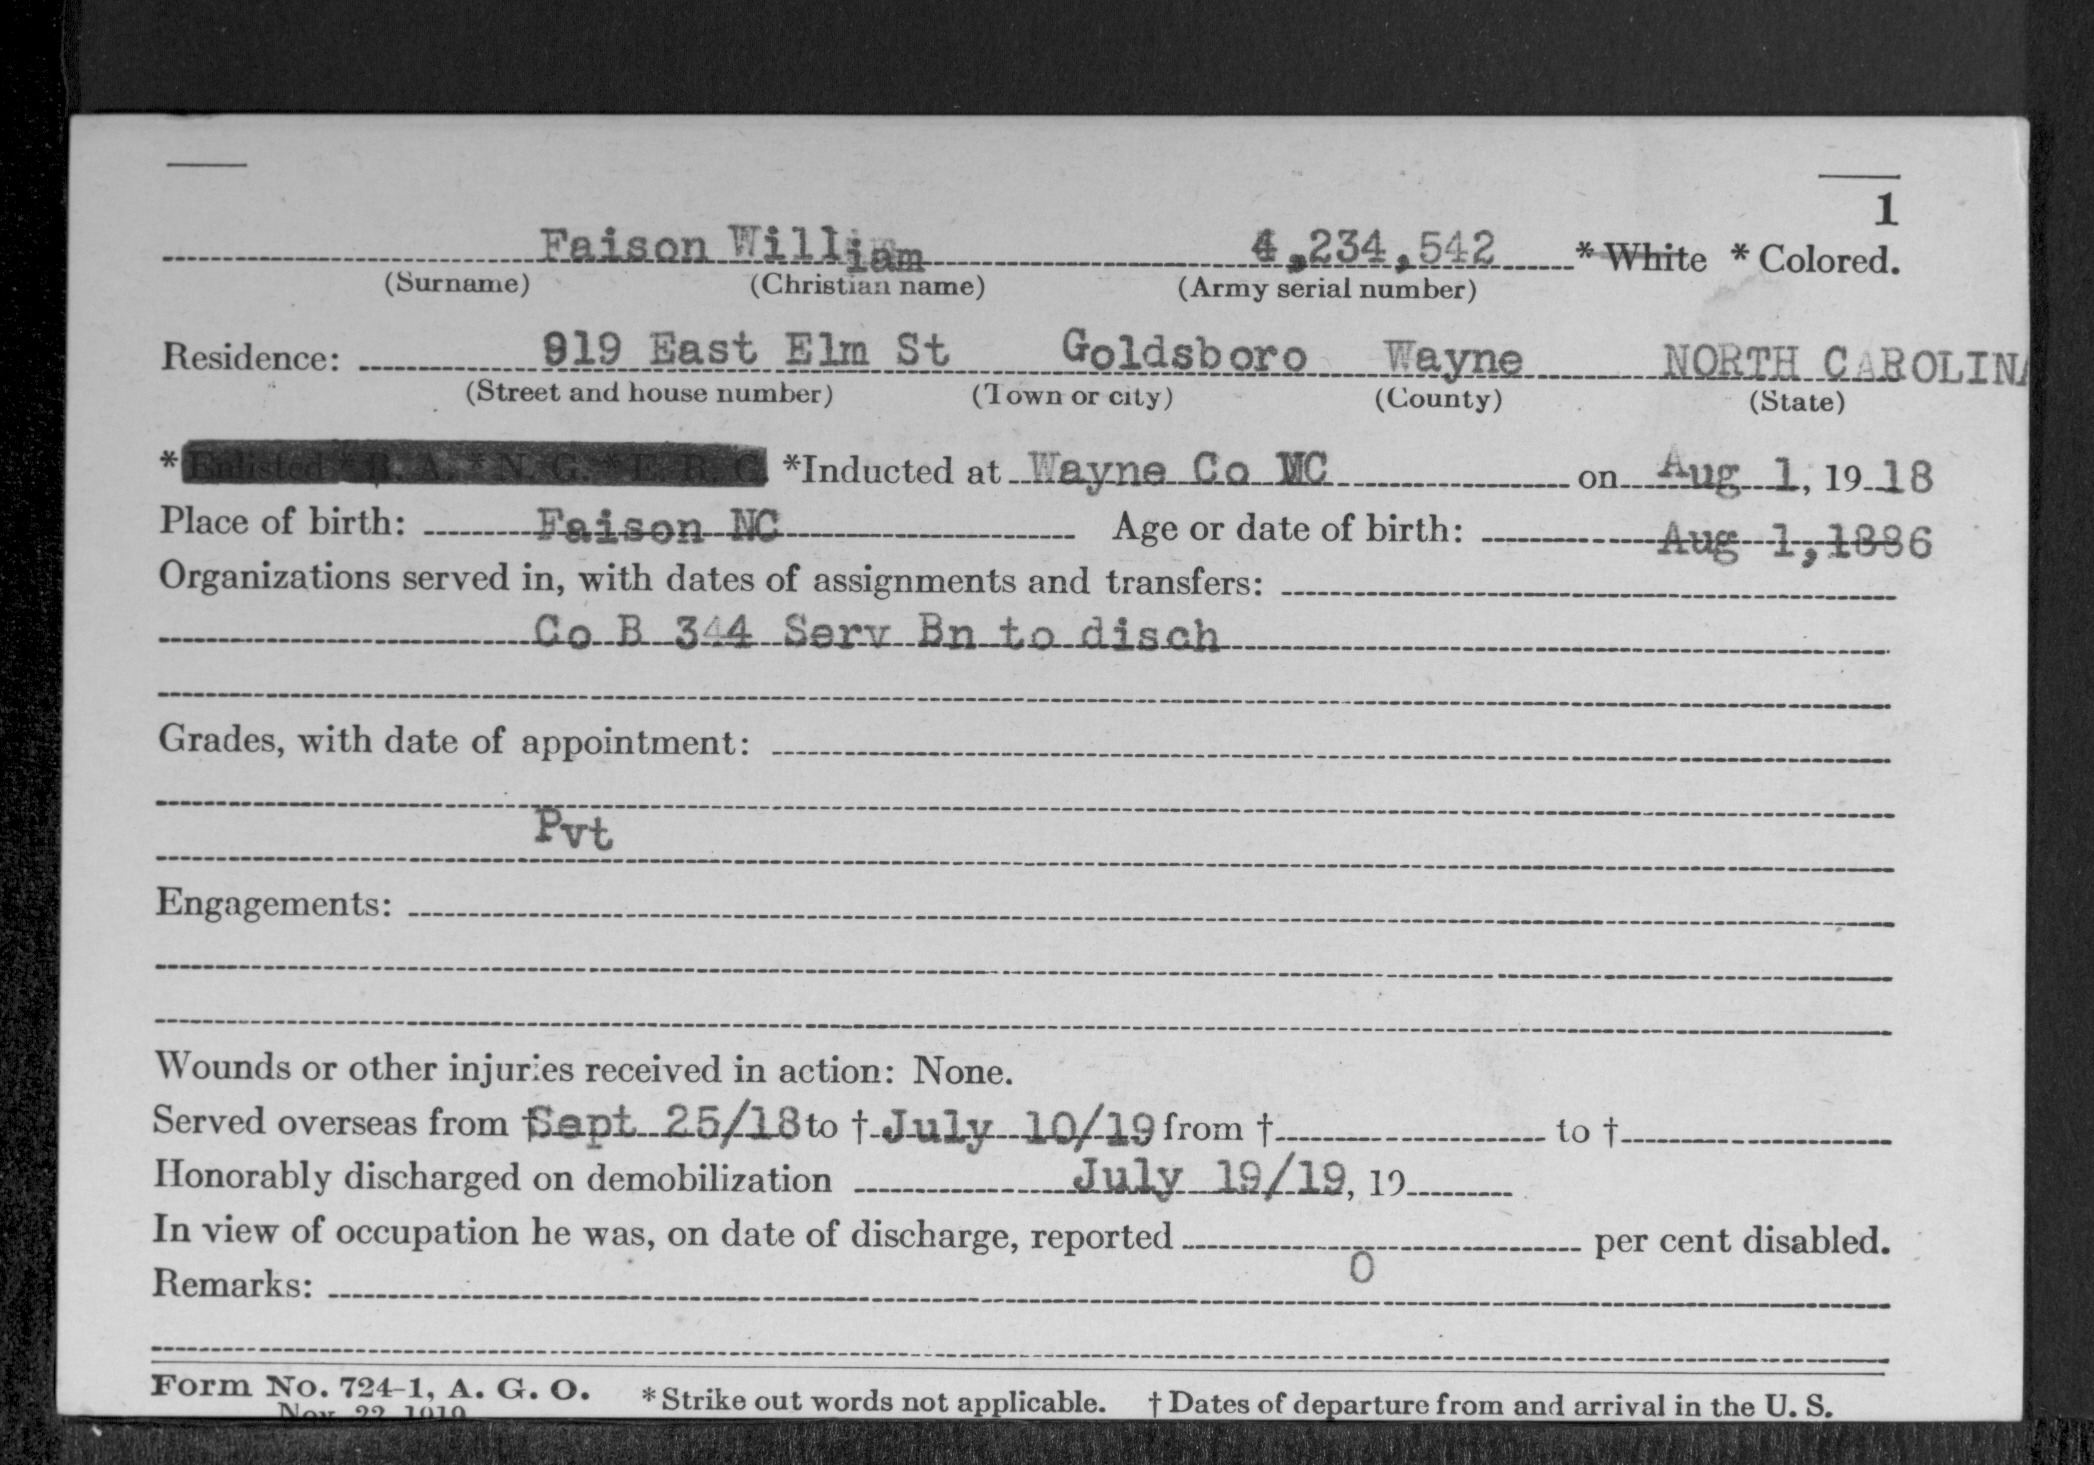 1
Faison William 4,234,542 * White * Colored.
(Surname) (Christian name) (Army serial number)
Residence: 919 East Elm St Goldsboro Wayne NORTH CAROLINA
(Street and house number) (Town or city) (County) (State)
* Enlisted * R. A. * N. G. * E. R. C. *Inducted at Wayne Co NC on Aug 1, 19 18
Place of birth: Faison NC Age or date of birth: Aug 1,1886
Organizations served in, with dates of assignments and transfers:
Co B 344 Serv Bn to disch
Grades, with date of appointment:
Pvt
Engagements:
Wounds or other injuries received in action: None.
Served overseas from † Sept 25/18 to † July 10/19 from † to †
Honorably discharged on demobilization July 19/19, 19
In view of occupation he was, on date of discharge, reported 0 per cent disabled.
Remarks:
Form No. 724-1, A. G. O. * Strike out words not applicable. † Dates of departure from and arrival in the U. S.
Nov. 22, 1919